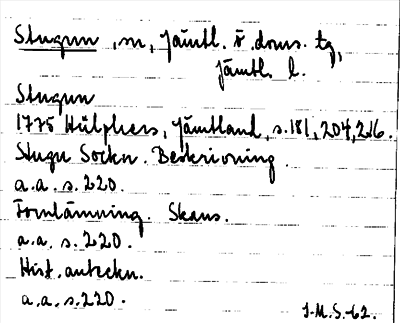 Stugun, sn, Jämtl. ö. doms. tg,
Jämtl. l.
Stugun
1775 Hülphers, Jämtland, s. 181, 204, 216.
Stugu Sockn. Beskrivning.
a.a. s. 220.
Fornlämning. Skans.
a.a. s. 220.
Hist. anteckn.
a.a. s. 220.
I.M.S.-62.